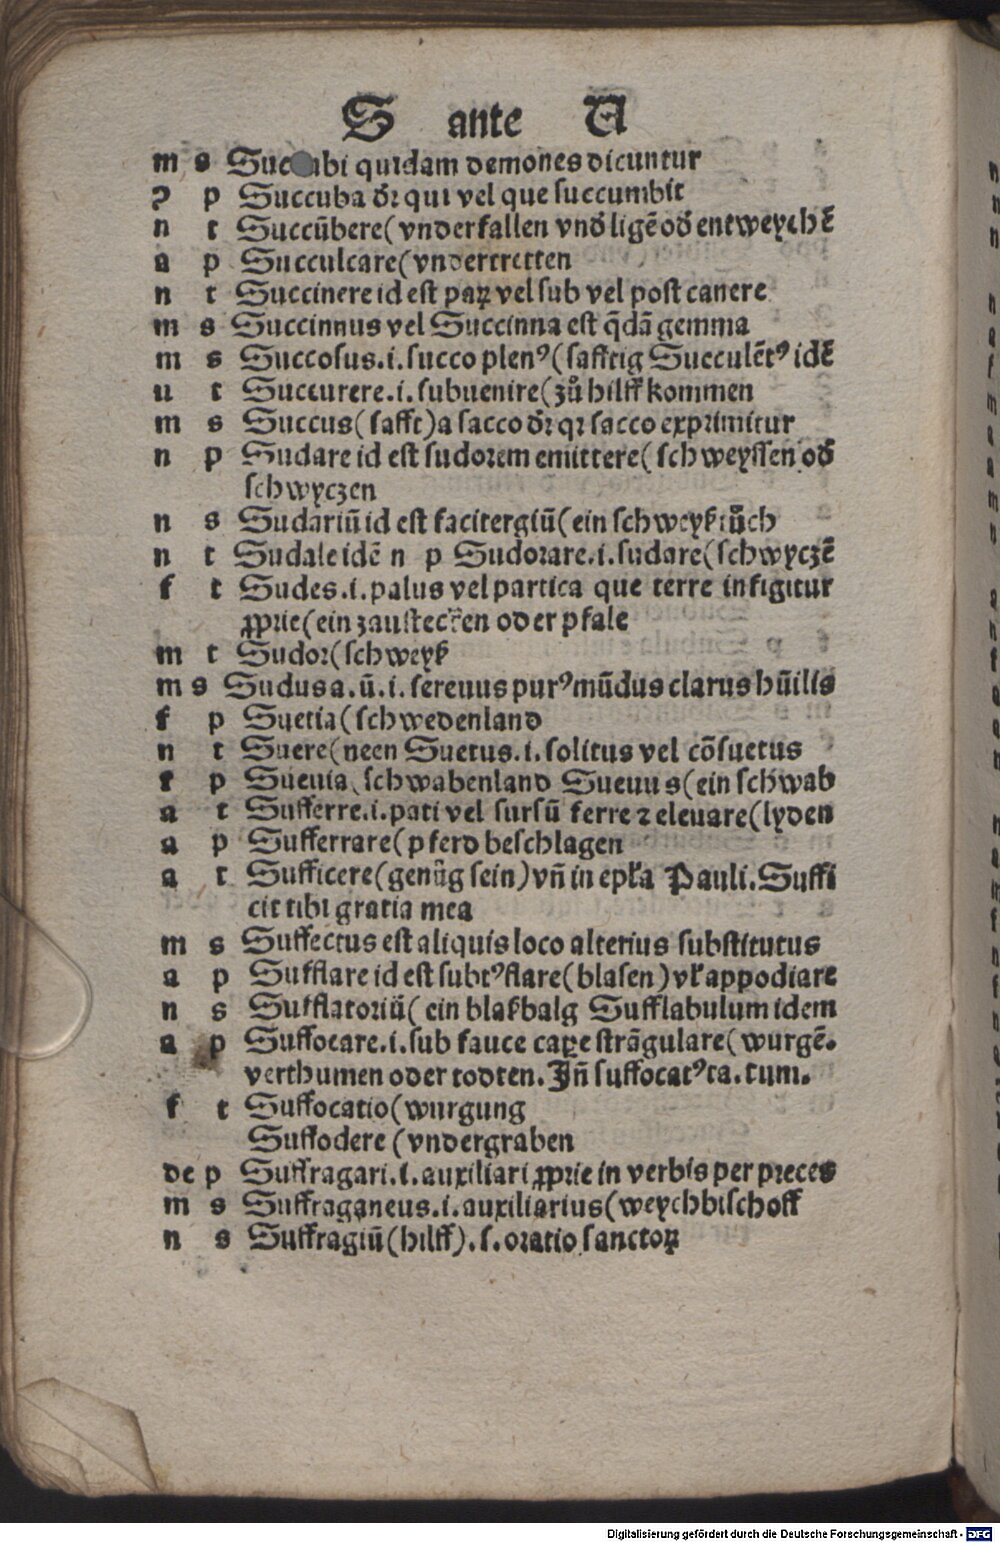 S ante U
m s Succubi quidam demones dicuntur
ꝯ p Succuba dr̄ qui vel que succumbit
n t Succūbere(vnderfallen vnd̄ ligē od̄ entweychē
a p Succulcare(vndertretten
n t Succinere id est paꝝ vel sub vel post canere
m s Succinnus vel Succinna est q̄dā gemma
m s Succosus.i.succo plenꝰ(safftig Succulētꝰ idē
u t Succurere.i.subuenire(zů hilff kommen
m s Succus(safft)a sacco dr̄ qr sacco exprimitur
n p Sudare id est sudorem emittere(schweyssen od̄
schwyczen
n s Sudariū id est facitergiū(ein schweyßtůch
n t Sudale idē n p Sudorare.i.sudare(schwyczē
f t Sudes.i.palus vel partica que terre infigitur
ꝓprie(ein zaustecken oder pfale
m t Sudor(schweyß
m s Sudus a.ū.i.serenus purꝰ mūdus clarus hūilis
f p Suetia(schwedenland
n t Suere(neen Suetus.i.solitus vel cōsuetus
f p Sueuia(schwabenland Sueuus(ein schwab
a t Sufferre.i.pati vel sursū ferre ⁊ eleuare(lyden
a p Sufferrare(pferd beschlagen
a t Sufficere(genůg sein)vn̄ in epła Pauli.Suffi
cit tibi gratia mea
m s Suffectus est aliquis loco alterius substitutus
a p Sufflare id est subtꝰflare(blasen)vł appodiare
n s Sufflatoriū(ein blaßbalg Sufflabulum idem
a p Suffocare.i.sub fauce caꝑe strāgulare(wurgē.
verthumen oder todten.In̄ suffocatꝰ ta.tum.
f t Suffocatio(wurgung
Suffodere(vndergraben
de p Suffragari.i.auxiliari ꝓprie in verbis per preces
m s Suffraganeus.i.auxiliarius(weychbischoff
n s Suffragiū(hilff).s.oratio sanctoꝝ
Digitalisierung gefördert durch die Deutsche Forschungsgemeinschaft - DFG